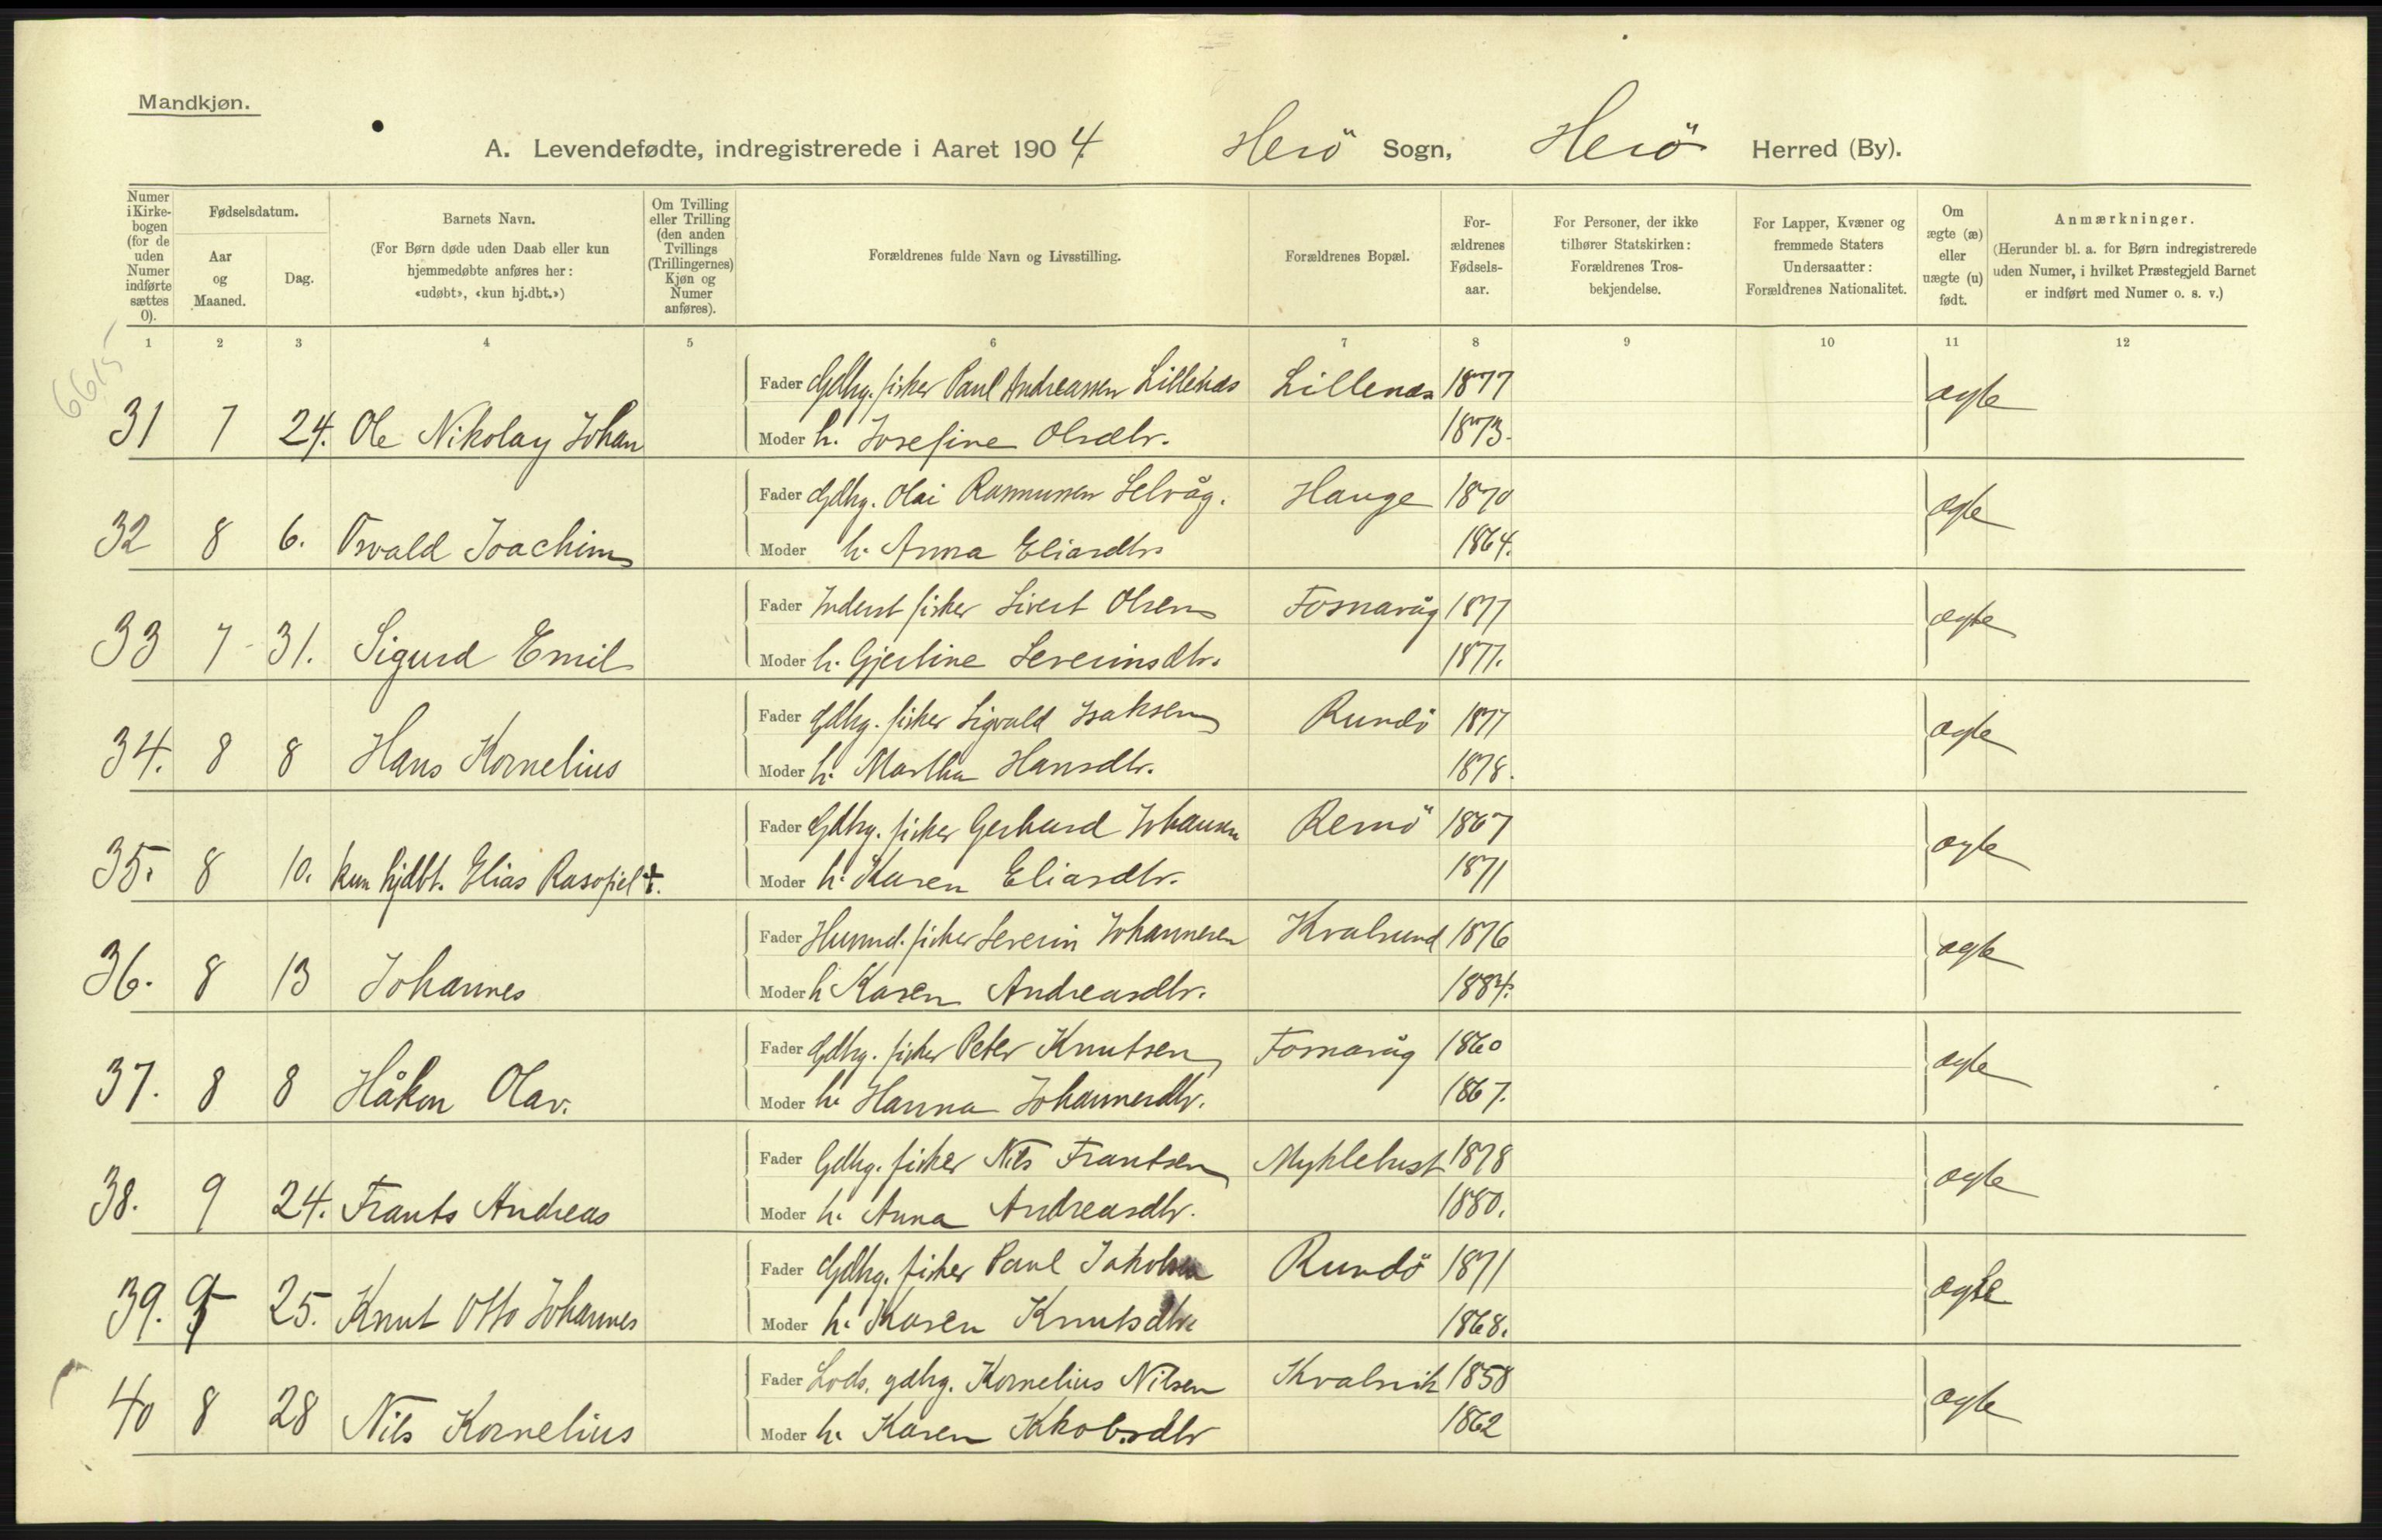 Mandkjøn.
A. Levendefødte, indregistrerede i Aaret 1904. Herö Sogn, Herö Herred (By).
Numer i Kirkebogen (for de uden Numer indførte sættes 0).
Fødselsdatum.
Aar og Maaned.
Dag.
Barnets Navn.
(For Børn døde uden Daab eller kun hjemmedøbte anføres her: «udøbt», «kun hj.dbt.»)
Om Tvilling eller Trilling (den anden Tvillings (Trillingernes) Kjøn og Numer anføres).
Forældrenes fulde Navn og Livsstilling.
Forældrenes Bopæl.
Forældrenes Fødselsaar.
For Personer, der ikke tilhører Statskirken: Forældrenes Trosbekjendelse.
For Lapper, Kvæner og fremmede Staters Undersaatter: Forældrenes Nationalitet.
Om ægte (æ) eller uægte (u) født.
Anmærkninger.
(Herunder bl. a. for Børn indregistrerede uden Numer, i hvilket Præstegjeld Barnet er indført med Numer o. s. v.)
1 2 3 4 5 6 7 8 9 10 11 12
6615
Fader Gdbg. fisker Paul Andreassen Lillenæs Lillenæs 1877 ægte
31 7 24. Ole Nikolay Johan Moder h. Josefine Olsdtr. 1873.
Fader Gdbg. Olai Rasmussen Selvåg. Hauge 1870 ægte
32 8 6. Osvald Joachim Moder h. Anna Eliasdtr. 1864.
Fader Inderst fisker Sivert Olsen Fosnavåg 1877 ægte
33 7 31. Sigurd Emil Moder h. Gjertine Severinsdtr. 1877.
Fader Gdbg. fisker Sigvald Isaksen Rundö 1877 ægte
34. 8 8 Hans Kornelius Moder h. Martha Hansdtr. 1878.
Fader Gdbg. fisker Gerhard Johansen Remö 1867 ægte
35. 8 10. kun hjdbt. Elias Rasofiel †. Moder h. Karen Eliasdtr. 1871
Fader Husmd. fisker Severin Johannesen Kvalsund 1876 ægte
36. 8 13 Johannes Moder h Karen Andreasdtr. 1884.
Fader Gdbg. fisker Peter Knutsen Fosnavåg 1860 ægte
37. 8 8 Håkon Olav. Moder h. Hanna Johannesdtr. 1867.
Fader Gdbg. fisker Nils Frantsen Myklebust 1878 ægte
38. 9 24. Frants Andreas Moder h. Anna Andreasdtr. 1880.
Fader Gdbg. fisker Paul Jakobsen Rundö 1871 ægte
39. 9 25. Knut Otto Johannes Moder h. Karen Knutsdtr. 1868.
Fader Lods, gdbg. Kornelius Nilsen Kvalsvik 1858 ægte
40 8 28 Nils Kornelius Moder h. Karen Jakobsdtr 1862